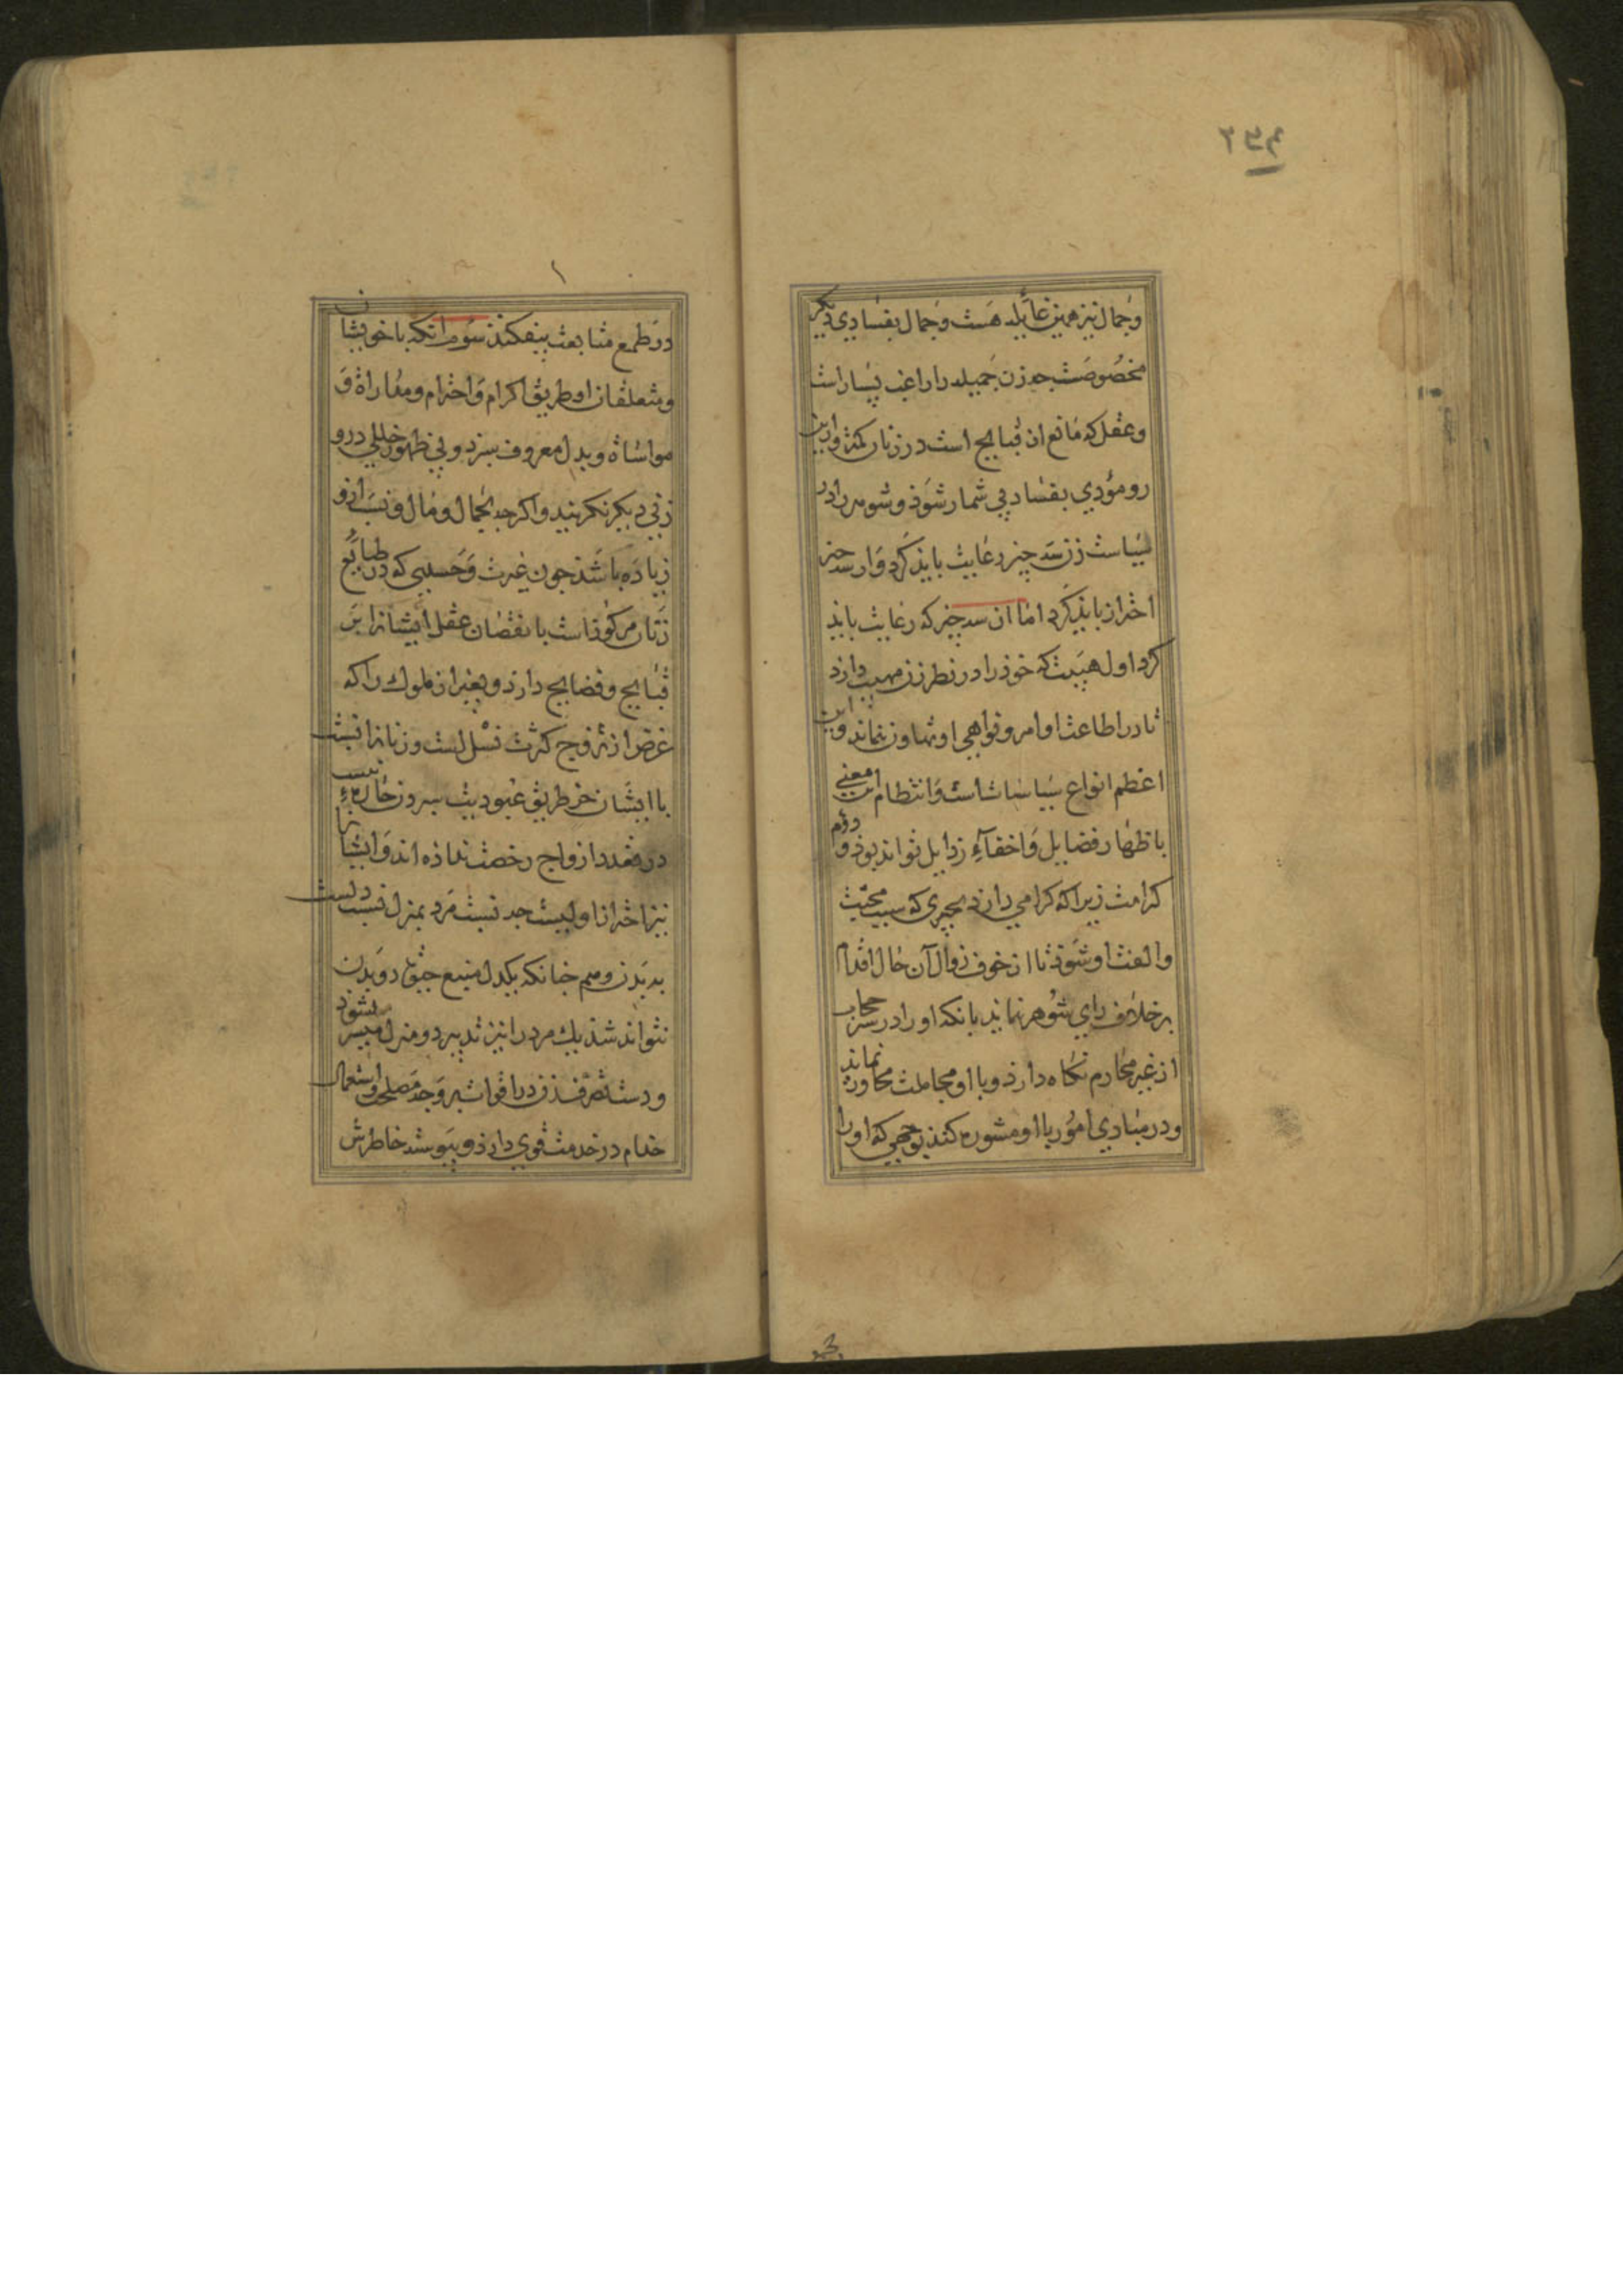 ۲۵۴
وجمال نیز همین غایله هست وجمال بفسادی دیکر
مخصوصست جه زن جمیله را راغب بسیار است
وعقل که مانع از قبایح است در زنان کمتر وازین
رو مؤدی بفساد بی شمار شوذ وشوهر را در
سیاست زن سه چیز رعایت بایذ کرد واز سه چیز
احتراز بایذ کرد اما ان سه چیز که رعایت بایذ
کرد اول هیبت که خوذ را در نظر زن مهیب دارد
تا در اطاعت اوامر ونواهی او تهاون ننماید واین
اعظم انواع سیاساتست وانتظام این معنی
باظهار فضایل واخفآء رذایل تواند بوذ دوم
کرامت زیرا که کرامی دارد بجیزی که سبب محبت
والفت او شوذ تا از خوف زوال آن حال اقدام
برخلاف رای شوهر نماید بانکه او را در ستر حجاب
از غیر محارم نکاه دارذ وبا او مجاملت محاوره نماید
ودر مبادی امور با او مشوره کنذ بوجهی که او را
در طمع متابعت بیفکنذ سوم انکه با خویشان
ومتعلقان او طریق اکرام واحترام ومداراة و
مواساة وبذل معروف سپرد وبی ظهور خللی درو
زنی دیکر نکزیند واکرجه بجمال ومال ونسب ازو
زیاده باشذ جون غیرت وحسدی که در طبایع
زنان مرکوز است با نقصان عقل ایشانرا بر
قبایح وفضایح دارد وبغیر از ملوک را که
غرض از تزوج کثرت نسل است وزنانرا نسبت
با ایشان جز طریق عبودیت سپردن جاره نیست
در تعدد ازواج رخصت نداذه اند وایشانرا
نیز احتراز اولیست جه نسبت مرد بمنزل نسبت دلست
به بدن وهم جنانکه یکدل منبع حیوة دو بدن
نتواند شذ یک مرد را نیز تدبیر دو منزل میسر نشود
ودست تصرف زن در اقوات بر وجه مصلحت واستعمال
خدام در خدمت قوی دارذ وپیوسته خاطرش